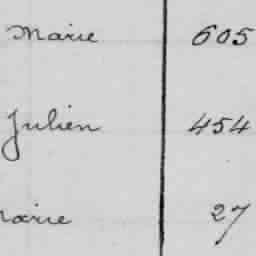 Marie 605
Julien 454
marie 27